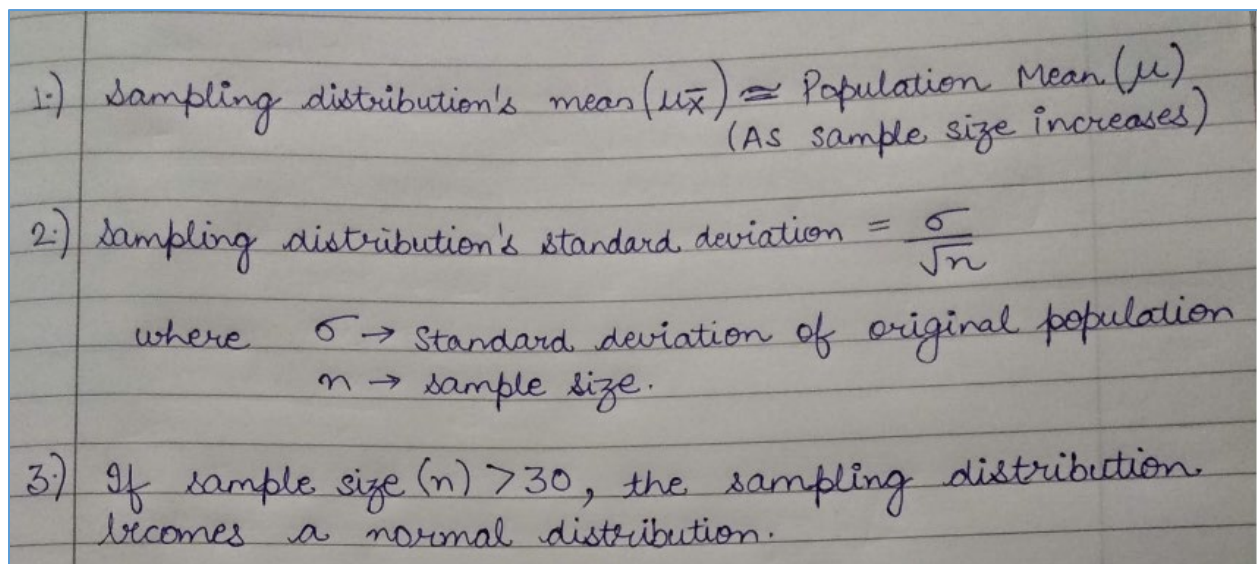 1.) Sampling distribution's mean (μx̄) ≃ Population Mean (μ)
(As sample size increases)
2.) Sampling distribution's standard deviation = σ/√n
where σ → Standard deviation of original population
n → sample size.
3.) If sample size (n) >30, the sampling distribution
becomes a normal distribution.